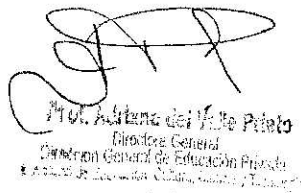 Prof. Adriana del Valle Prieto
Directora General
Dirección General de Educación Privada